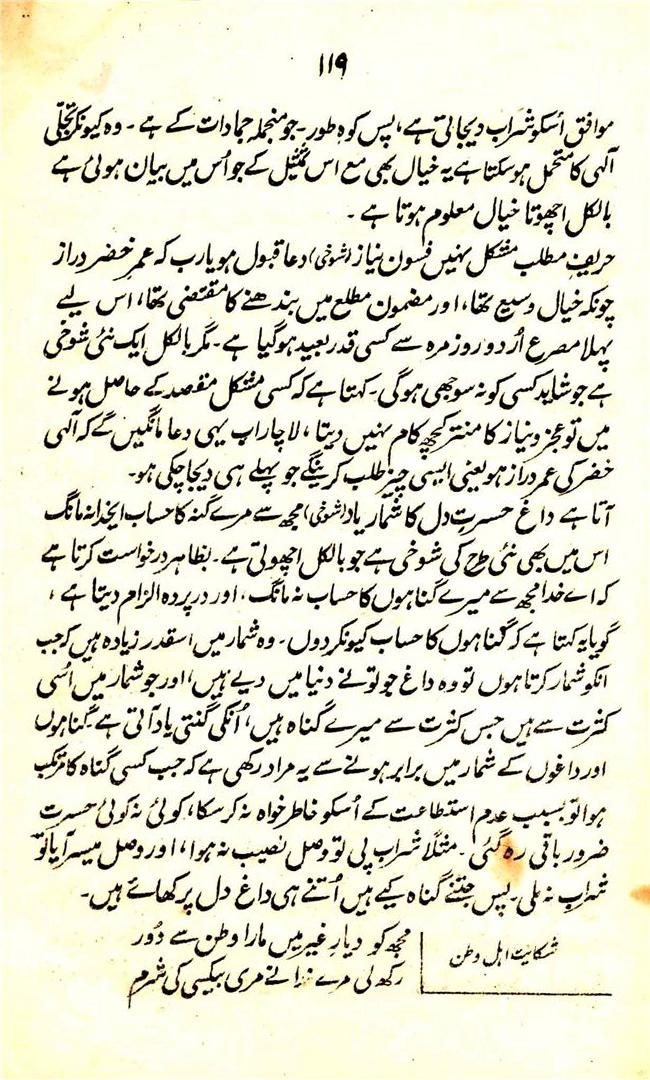 ۱۱۹
موافق اُسکو شراب دیجاتی ہے، پس کوہِ طور۔ جو منجملہ جمادات کے ہے۔ وہ کیونکر تجلّی
آلہی کا متحمل ہو سکتا ہے یہ خیال بھی مع اس تمثیل کے جو اُس میں بیان ہوئی ہے
بالکل اچھوتا خیال معلوم ہوتا ہے۔
حریفِ مطلب مشکل نہیں فسونِ نیاز (شوخی) دعا قبول ہو یارب کہ عمرِ خضر دراز
چونکہ خیال وسیع تھا، اور مضمون مطلع میں بندھنے کا مقتضی تھا، اس لیے
پہلا مصرع اُردو روزمرہ سے کسی قدر بعید ہوگیا ہے۔ مگر بالکل ایک نئی شوخی
ہے جو شاید کسی کو نہ سوجھی ہوگی۔ کہتا ہے کہ کسی مشکل مقصد کے حاصل ہونے
میں تو عجز و نیاز کا منتر کچھ کام نہیں دیتا، لاچار اب یہی دعا مانگیں گے کہ آلہی
خضر کی عمر دراز ہو یعنی ایسی چیز طلب کرینگے جو پہلے ہی دیجا چکی ہو۔
آتا ہے داغِ حسرتِ دل کا شمار یاد (شوخی) مجھ سے مرے گنہ کا حساب ایخدا نہ مانگ
اس میں بھی نئی طرح کی شوخی ہے جو بالکل اچھوتی ہے۔ بظاہر درخواست کرتا ہے
کہ اے خدا مجھ سے میرے گناہوں کا حساب نہ مانگ، اور در پردہ الزام دیتا ہے،
گویا یہ کہتا ہے کہ گناہوں کا حساب کیونکر دوں۔ وہ شمار میں اسقدر زیادہ ہیں کہ جب
انکو شمار کرتا ہوں تو وہ داغ جو تونے دنیا میں دیے ہیں، اور جو شمار میں اُسی
کثرت سے ہیں جس کثرت سے میرے گناہ ہیں، اُنکی گنتی یاد آتی ہے۔ گناہوں
اور داغوں کے شمار میں برابر ہونے سے یہ مراد رکھی ہے کہ جب کسی گناہ کا مرتکب
ہوا تو بسبب عدم استطاعت کے اُسکو خاطر خواہ نہ کر سکا، کوئی نہ کوئی حسرت
ضرور باقی رہ گئی۔ مثلاً شراب پی تو وصل نصیب نہ ہوا، اور وصل میسر آیا تو
شراب نہ ملی۔ پس جتنے گناہ کیے ہیں اُتنے ہی داغ دل پر کھائے ہیں۔
شکایت اہل وطن
مجھ کو دیارِ غیر میں مارا وطن سے دُور
رکھ لی مرے خدا نے مری بیکسی کی شرم